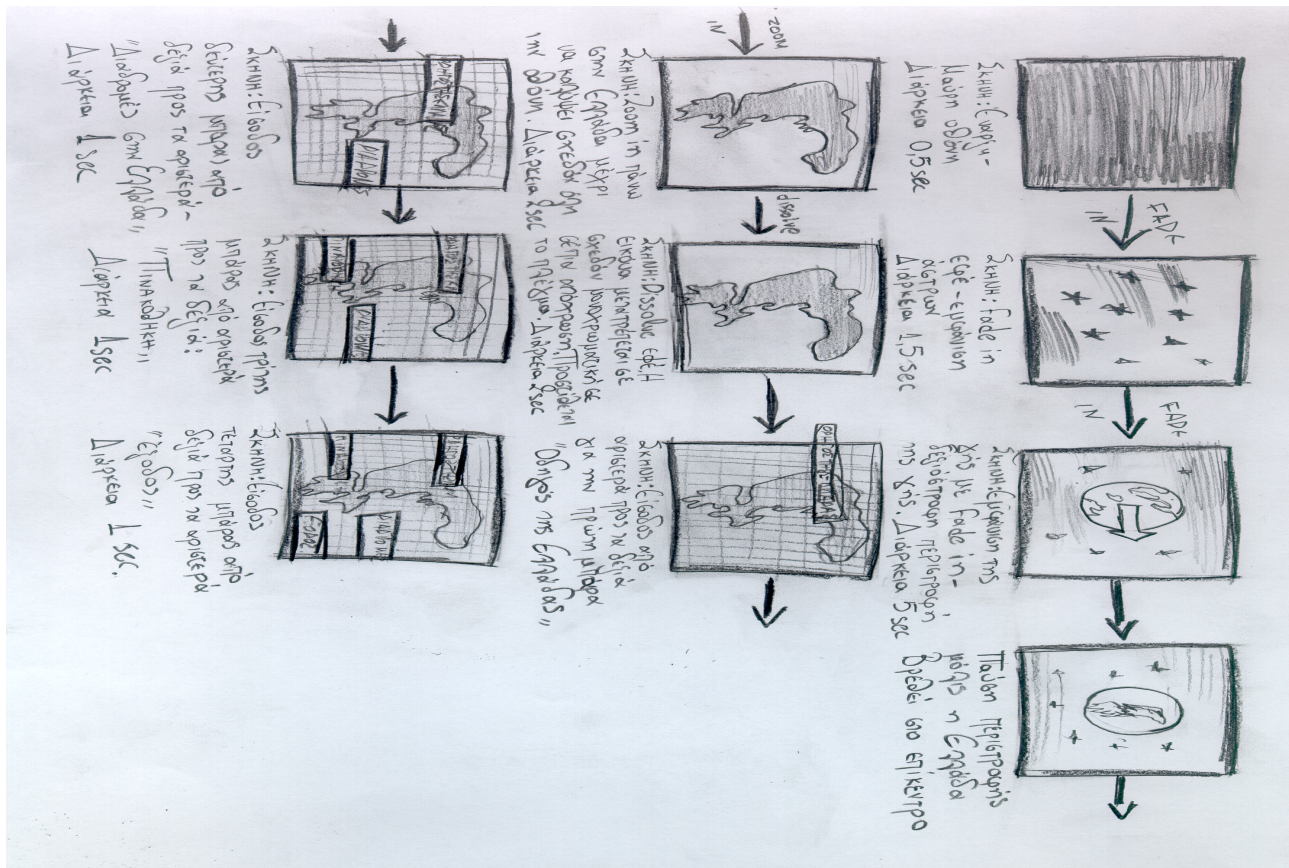 FADE
IN
FADE
IN
Σκηνή: Εναρξη-
Μαύρη οθόνη
Διάρκεια 0,5sec
Σκηνη: fade in
εφέ-εμφάνιση
άστρων
Διάρκεια 1,5sec
Σκηνη: Εμφάνιση της
γης με fade in-
δεξιόστροφη περιστροφή
της γής, Διάρκεια 5sec
Παύση περιστροφής
μόλις η Ελλάδα
βρεθεί στο επίκεντρο
ZOOM
IN
dissolve
Σκηνη: Zoom in πάνω
στην Ελλάδα μέχρι
να καλύψει σχεδόν όλη
την οθόνη. Διάρκεια 2sec
Σκηνη: Dissolve εφέ, Η
εικόνα μετατρέπεται σε
σχεδόν μονοχρωματική σε
σέπιν απόχρωση, Προστίθεται
το πλέγμα, Διάρκεια 2sec
Σκηνη: Είσοδος από
αριστερά προς τα δεξιά
για την πρώτη μπάρα
"Οδηγός της Ελλάδας"
Σκηνη: Είσοδος
δεύτερης μπάρας από
δεξιά προς τα αριστερά-
"Διαδρομές στην Ελλάδα"
Διάρκεια 1 sec
Σκηνη: Είσοδος τρίτης
μπάρας από αριστερά
προς τα δεξιά:
"Πινακοθήκη"
Διάρκεια 1sec
Σκηνη: Είσοδος
τέταρτης μπάρας από
δεξιά προς τα αριστερά
"έξοδος"
Διάρκεια 1 sec.